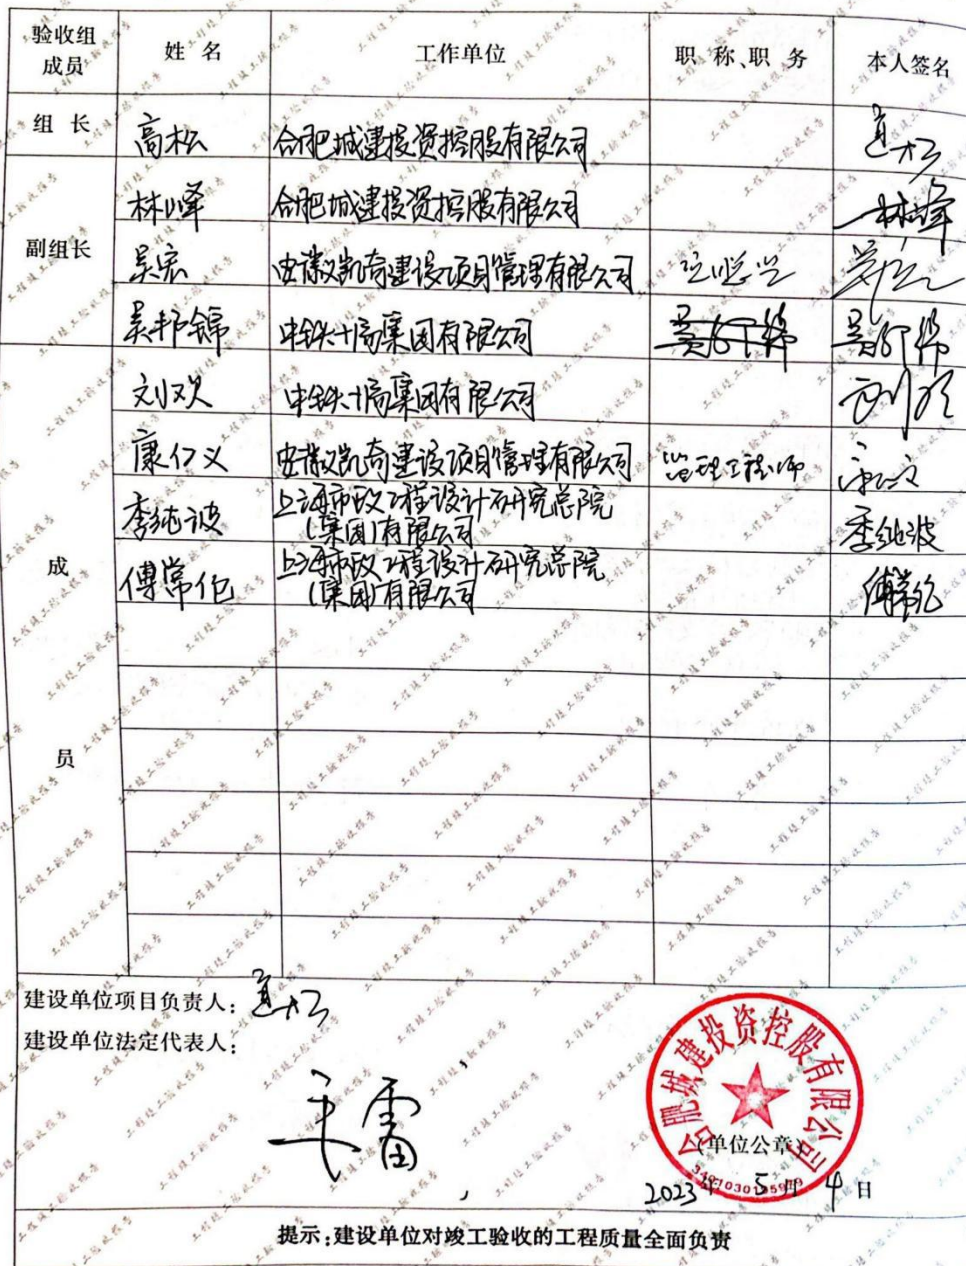 验收组
成员
姓 名
工作单位
职 称、职 务
本人签名
组 长
高松
合肥城建投资控股有限公司
高松
副组长
林峰
合肥城建投资控股有限公司
林峰
吴宏
安徽凯奇建设项目管理有限公司
吴邦锦
中铁十局集团有限公司
吴邦锦
吴邦锦
成
员
刘欢
中铁十局集团有限公司
刘欢
康仁义
安徽凯奇建设项目管理有限公司
监理工程师
李纯波
上海市政工程设计研究总院
(集团)有限公司
李纯波
傅常伦
上海市政工程设计研究总院
(集团)有限公司
傅常伦
建设单位项目负责人:高松
建设单位法定代表人:
合肥城建投资控股有限公司
(单位公章)
2023年5月4日
提示:建设单位对竣工验收的工程质量全面负责
工程竣工验收报告